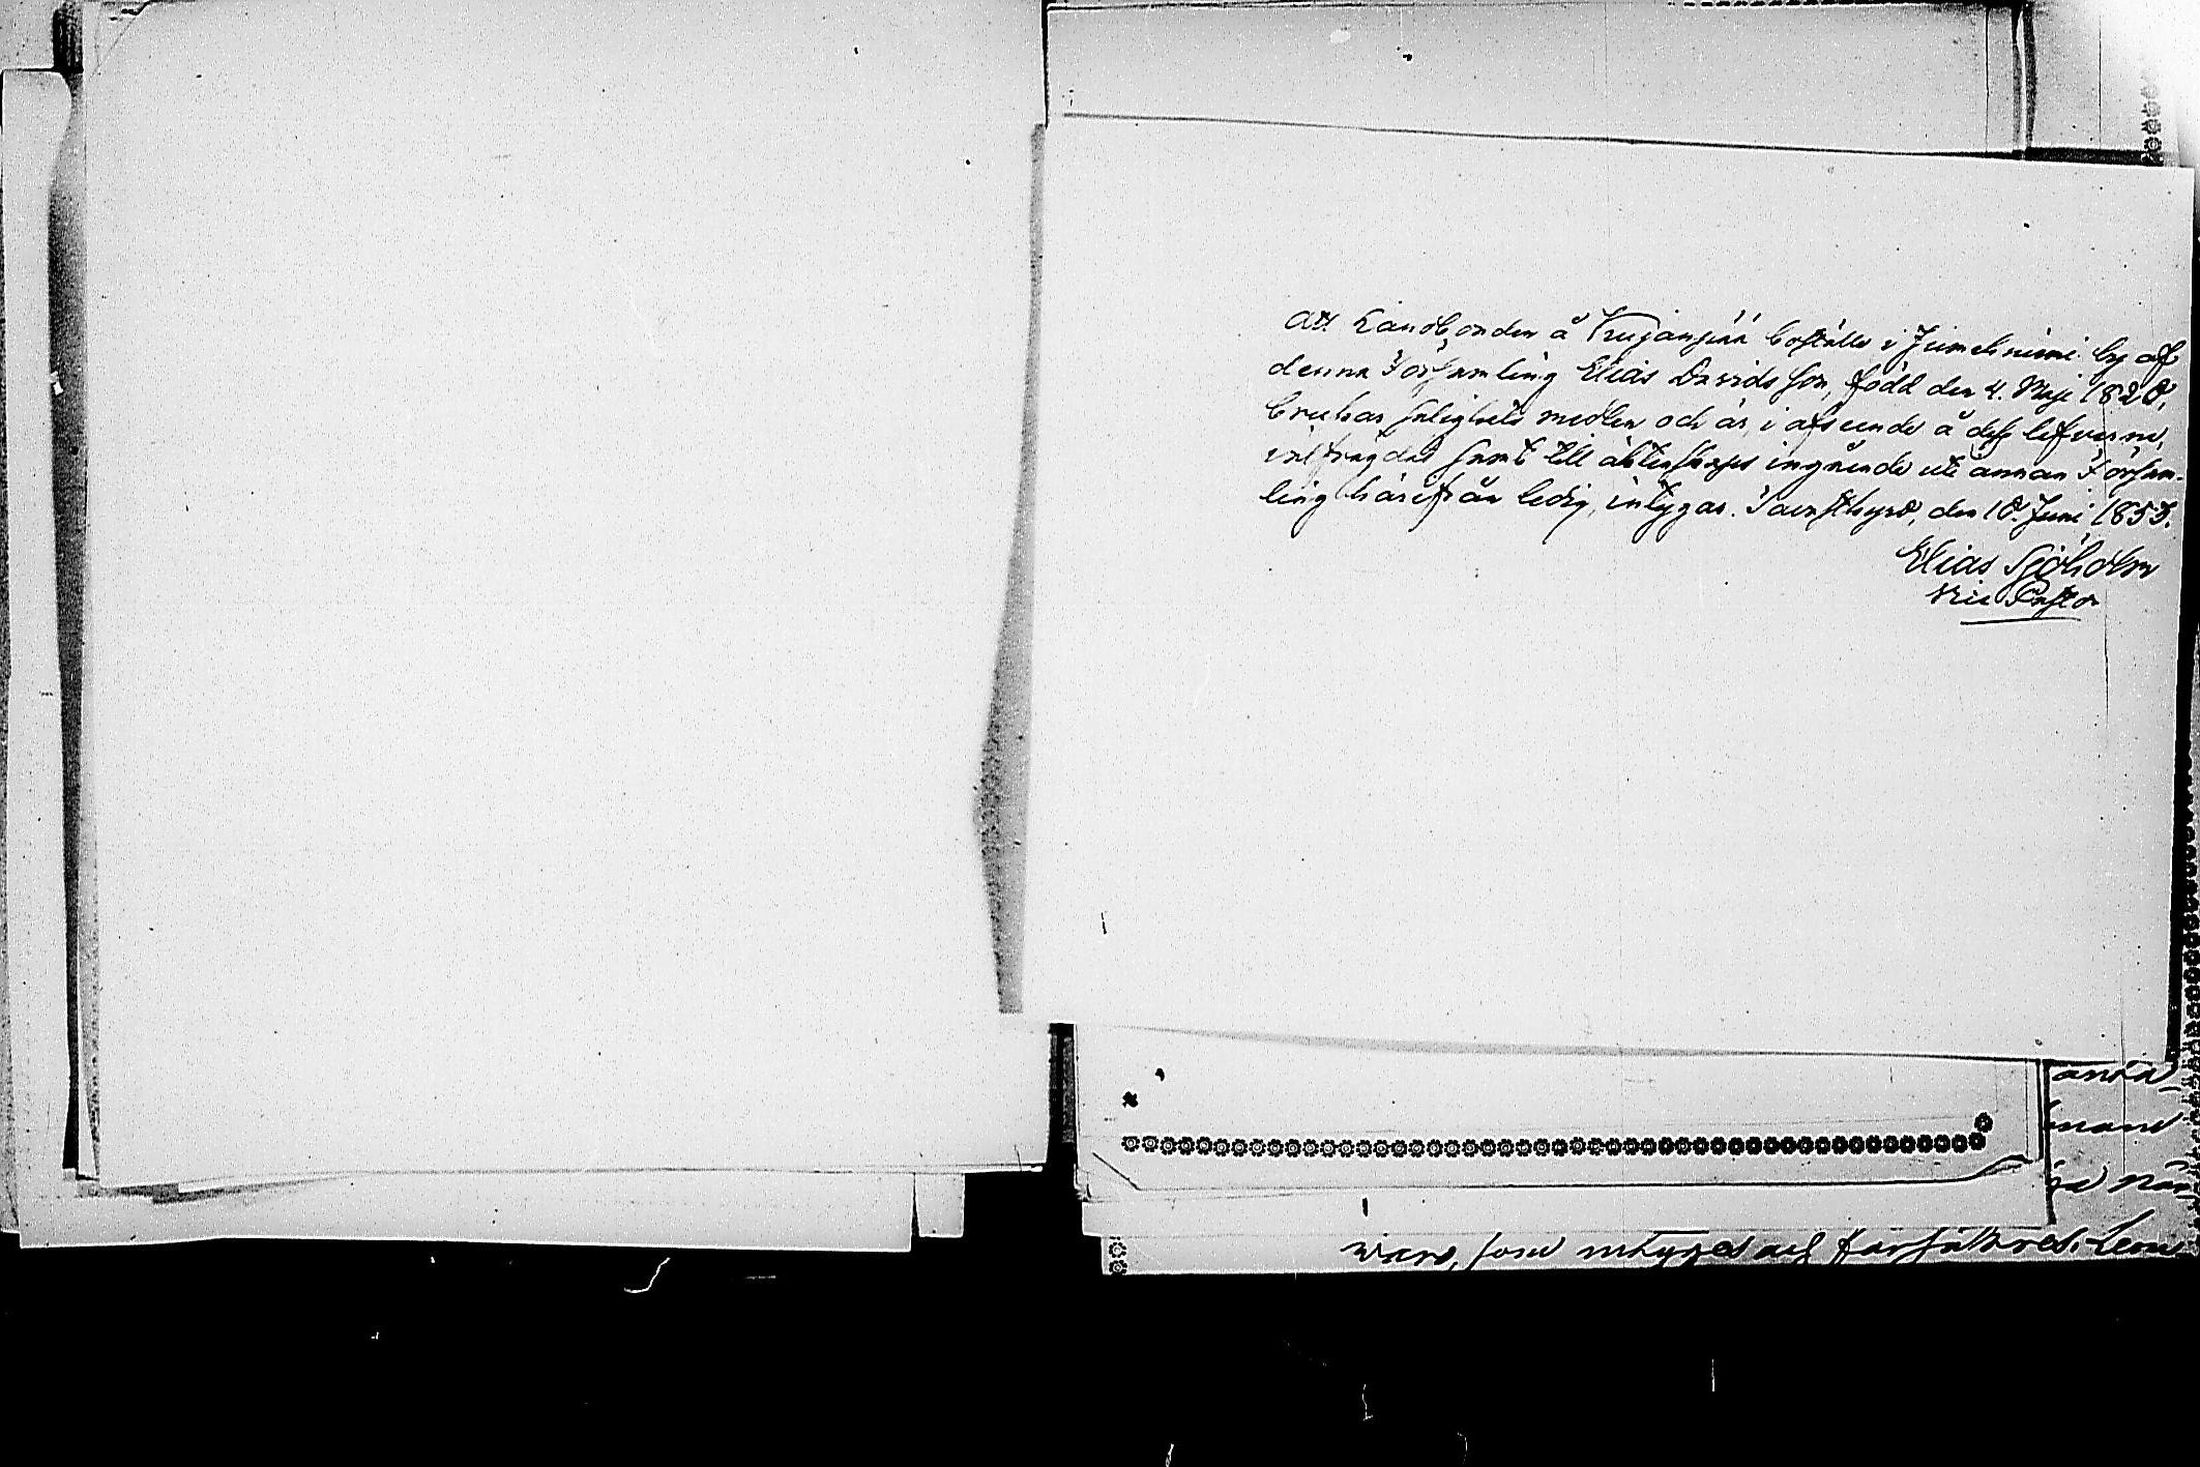 Att Landbonden å Krujanpää boställe i Jumekniemi by af
denna Församling Elias Davidsson, född den 4. Maji 1820,
brukar salighets medlen och är, i afseende å dess lefverne,
välfrägdad samt till äktenskaps ingående uti annan Försam-
ling härifrån ledig, intygar. den 10. Juni 1855.
Elias Sjöholm
Vice Pastor
som intygas af